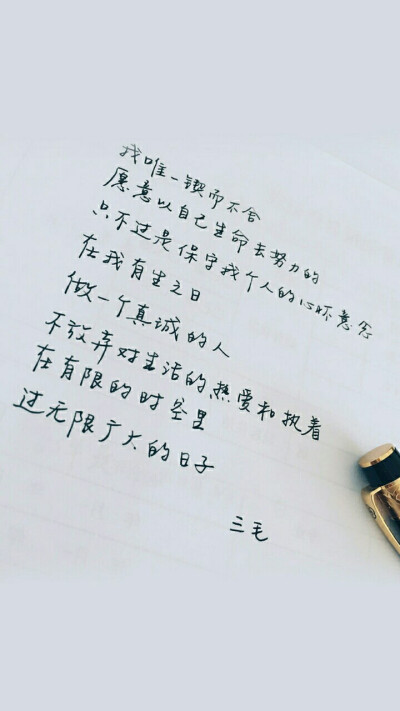 我唯一锲而不舍
愿意以自己生命去努力的
只不过是保守我个人的心怀意念
在我有生之日
做一个真诚的人
不放弃对生活的热爱和执着
在有限的时空里
过无限广大的日子
三毛